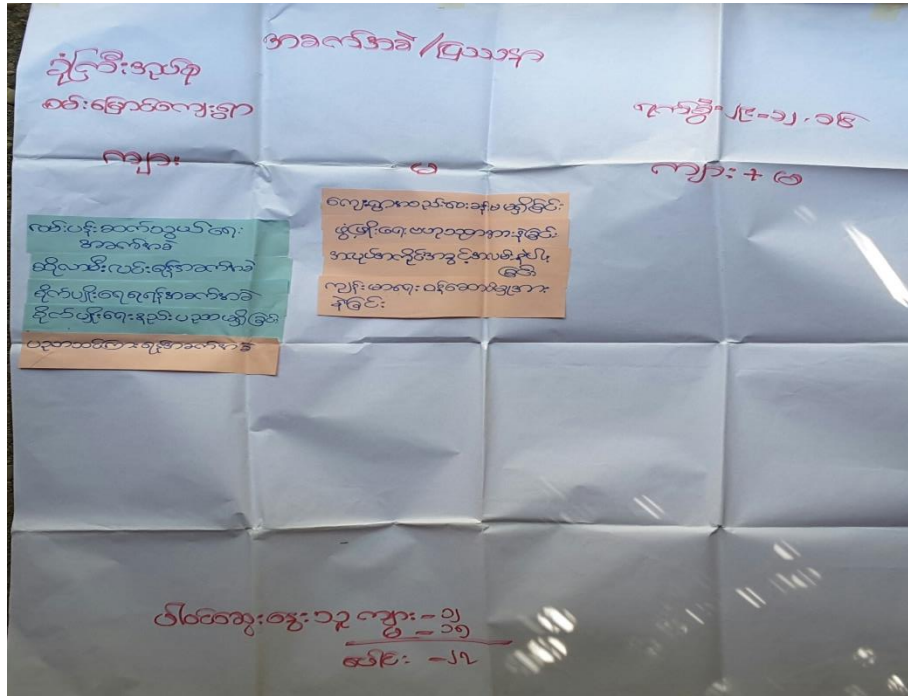 အခက်အခဲ/ပြဿနာ
ခုံကြီးဒေသ
စမ်းမြောင်ကျေးရွာ
ရက်စွဲ-၂၄-၁၂-၁၆
ကျား
မ
ကျား + မ
လမ်းပန်းဆက်သွယ်ရေး
အခက်အခဲ
ဆိုလာမီးလင်းရန်အခက်အခဲ
စိုက်ပျိုးရေရရန်အခက်အခဲ
စိုက်ပျိုးရေးနည်းပညာမရှိခြင်း
ပညာသင်ကြားရန်အခက်အခဲ
ကျေးရွာတည်းခိုခန်းမမရှိခြင်း
ဖွံ့ဖြိုးရေးဗဟုသုတအားနဲခြင်း
အလုပ်အကိုင်အခွင့်အလမ်းနဲပါး
ခြင်း
ကျန်းမာရေးဝန်ဆောင်မှုအား
နဲခြင်း
ပါဝင်ဆွေးနွေးသူ ကျား - ၁၂
မ - ၁၅
ပေါင်း - ၂၇